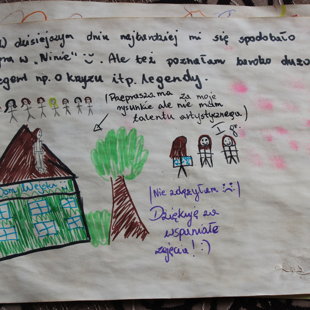 W dzisiejszym dniu najbardziej mi się spodobało
gra w „Ninie" :). Ale też poznałam bardzo dużo
legend np. o krzyżu itp. legendy.
(Przepraszam za moje
rysunki ale nie mam
talentu artystycznego)
I gę
Dom Wejcka
(Nie zdążyłam :( :()
Dziękuję za
wspaniałe
zajęcia! :)